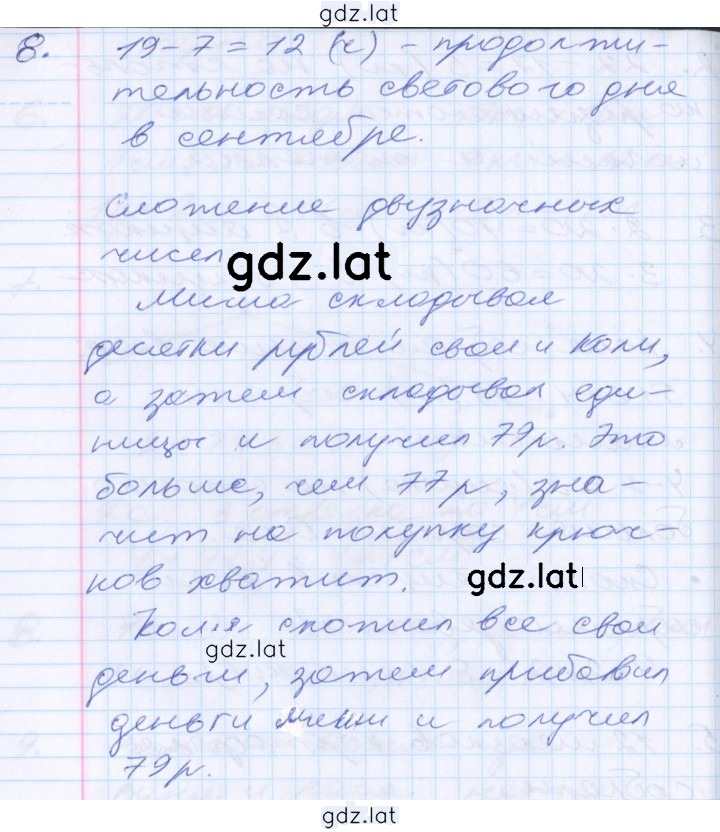 gdz.lat
8. 19-7=12 (ч) - продолжи-
тельность светового дня
в сентябре.
Сложение двузначных
чисел
gdz.lat
Миша складывал
десятки рублей свои и Коли,
а затем складывал еди-
ницы и получил 79 р. Это
больше, чем 77 р, зна-
чит на покупку крюч-
ков хватит.
gdz.lat
Коля сложил все свои
gdz.lat
деньги, затем прибавил
деньги Миши и получил
79 р.
gdz.lat